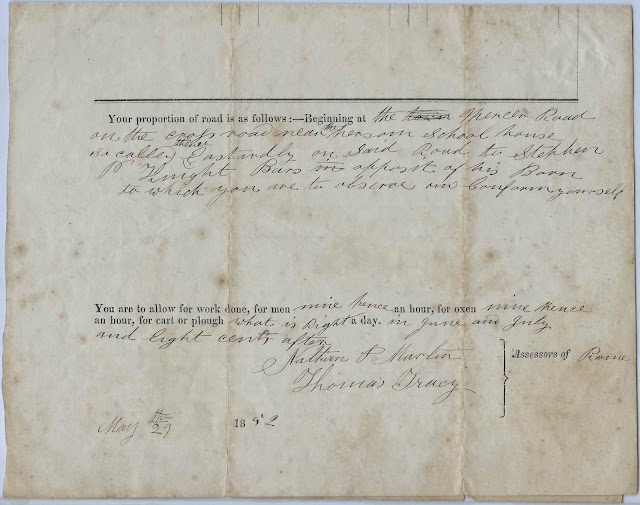 Your proportion of road is as follows :—Beginning at the town Spencer Road
on the cross road near the school house
so called thence Eastardly on Said Road to Stephen
P Knight Bars in opposit of his Barn
to which you are to observe and Conform yourself
You are to allow for work done, for men nine pence an hour, for oxen nine pence
an hour, for cart or plough what is Right a day. in June and July
and Eight cents after
Nathan S Martin
Thomas Tracy
Assessors of Rome
May the 29 1852